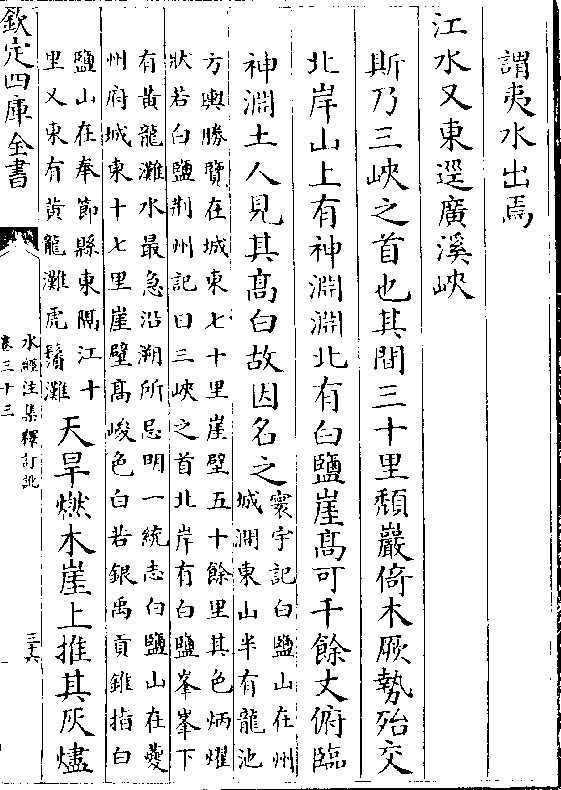 謂夷水出焉
江水又東逕廣溪峽
斯乃三峽之首也其間三十里頹巖倚木厥勢殆交
北岸山上有神淵淵北有白鹽崖高可千餘丈俯臨
神淵土人見其高白故因名之
寰宇記白鹽山在州
城澗東山半有龍池
方輿勝覽在城東七十里崖壁五十餘里其色炳燿
狀若白鹽荆州記曰三峽之首北岸有白鹽峯峯下
有黃龍灘水最急沿溯所忌明一統志白鹽山在夔
州府城東十七里崖壁高峻色白若銀禹貢錐指白
鹽山在奉節縣東隅江十
里又東有黃龍灘虎鬚灘
天旱燃木崖上推其灰燼
欽定四庫全書
水經注集釋訂訛
卷三十三
三十六